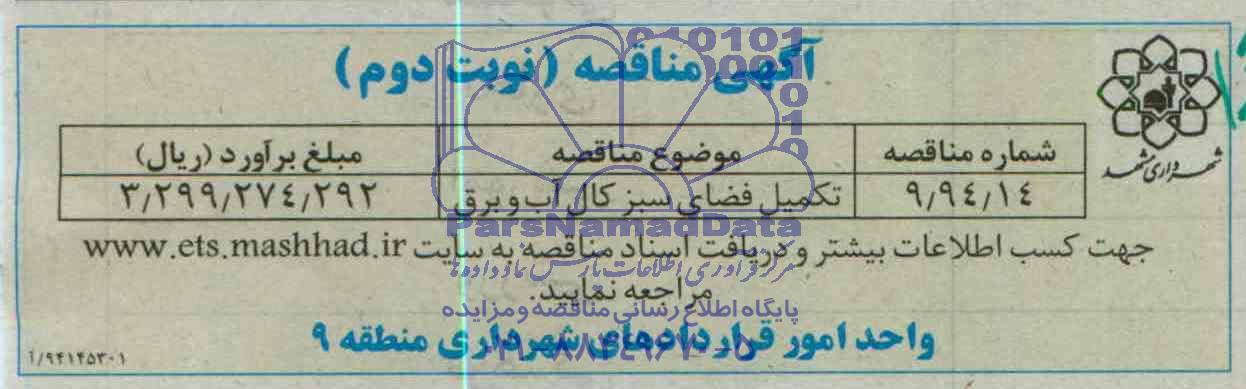 آگهی مناقصه (نوبت دوم)
شهرداری مشهد
شماره مناقصه موضوع مناقصه مبلغ برآورد (ریال)
۹٫۹٤٫۱٤ تکمیل فضای سبز کال آب و برق ۳٫۲۹۹٫۲۷٤٫۲۹۲
جهت کسب اطلاعات بیشتر و دریافت اسناد مناقصه به سایت www.ets.mashhad.ir
مراجعه نمایید.
واحد امور قراردادهای شهرداری منطقه ۹
۹۴۱۴۵۳۰۱/آ
ParsNamadData
مرکز فرآوری اطلاعات پارس نماد داده‌ها
پایگاه اطلاع رسانی مناقصه و مزایده